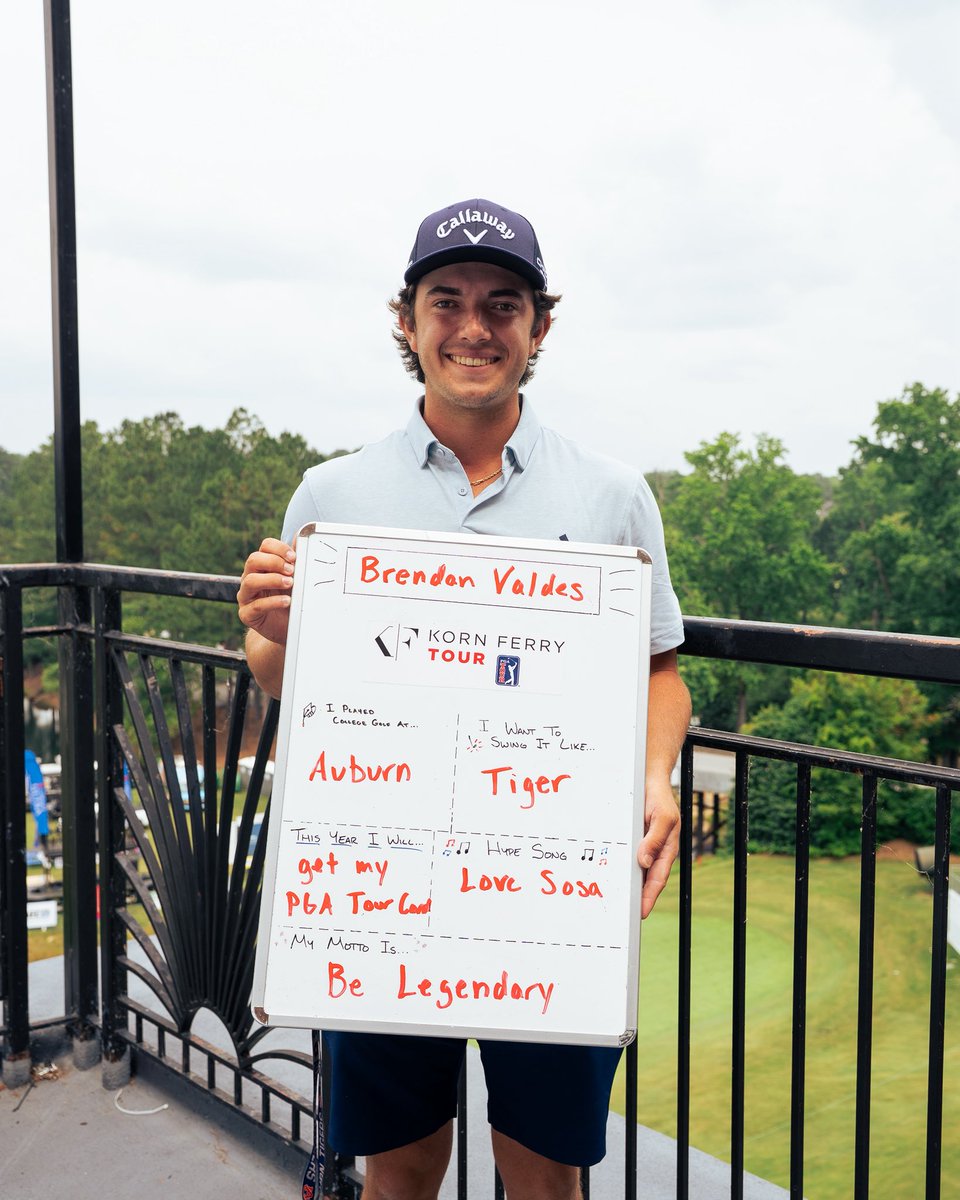 Callaway
Brendan Valdes
KF KORN FERRY
TOUR
I PLAYED
COLLEGE GOLF AT...
Auburn
I WANT TO
SWING IT LIKE...
Tiger
THIS YEAR I WILL...
get my
PGA Tour Card
HYPE SONG
Love Sosa
MY MOTTO IS...
Be Legendary